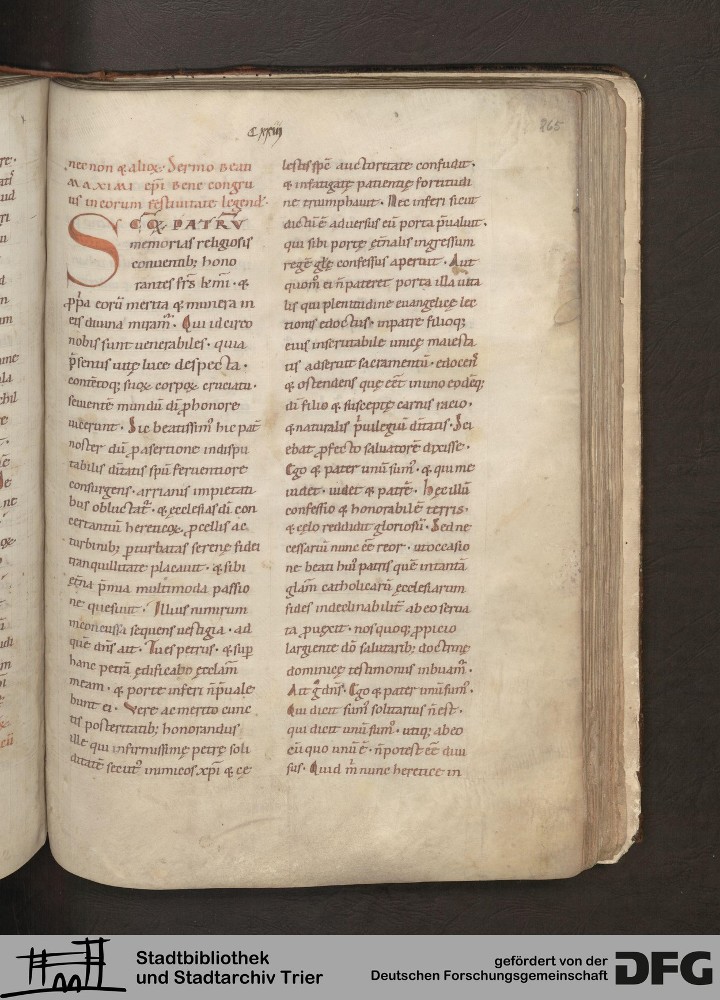 cxxiiij
265
nec non & alioꝝ. Sermo beati
MAXIMI epi bene congru
us in eorum festivitate legend᷒.
SCOꝜ PATRŨ
memorias religiosis
conventib; hono
rantes frs kmi. &
ꝓpa eorũ merita & munera in
eis divina miram᷒. Qui idcirco
nobis sunt venerabiles. quia
p̃sentis vitę luce despecta.
contẽtoq; suoꝝ corpoꝝ cruciatu.
sevientẽ mundũ di ꝑ honorẽ
vicerunt. Sic beatissim᷒ hic pat̃
noster dũ ꝓ asertione indispu
tabilis ditatis spũ ferventiore
consurgens. arrianis impietati
bus obluctat᷒. & ęcclesias di con
certantiũ hereticoꝝ ꝓcellis ac
turbinib; ꝑturbatas serenę fidei
tranquillitate placavit. & sibi
etn̄a p̃mia multimoda passio
ne quesivit. Illius nimirum
inconcussa sequens vestigia. ad
quẽ dñs ait. Tu es petrus. & sup̱
hanc petrã ędificabo ęcclam̄
meam. & portę inferi ñ p̃vale
bunt ei. Vere ac merito cunc
tis posteritatib; honorandus
ille qui infirmissimę petrę soli
ditatẽ secut᷒ inimicos xpi & cę
lestis spẽ auctoritate confudit.
& infatigatę patientię fortitudi
ne triumphavit. Nec inferi sicut
dictũ ẽ adversus eũ porta p̃valuit.
qui sibi portę etn̄alis ingressum
regẽ glę confessus aperuit. Aut
quom̃ ei ñ pateret porta illa vita
lis qui plenitudine evangelię lec
tionis edoctus. in patre filioq;
eius inscrutabile unicę maiesta
tis adseruit sacramentũ. edocens
& ostendens quę eet̃ in uno eodẽq;
di filio & susceptę carnis racio.
& naturalis p̃vilegiũ ditatis. Sci
ebat ꝓfecto salvatorẽ dixisse.
Ego & pater unũ sum᷒. & qui me
videt. videt & patrẽ. Hęc illũ
confessio & honorabilẽ terris.
& cęlo reddidit gloriosũ. Sed ne
cessariũ nunc eẽ reor. ut occasio
ne beati hui᷒ patris quẽ intantã
glam̄ catholicarũ ęcclesiarum
fides indeclinabilit̃ ab eo serva
ta ꝓvexit. nos quoq; ꝓpicio
largiente dõ salutarib; doctrinę
dominicę testimoniis inbuam᷒.
Ait g̊ dns. Ego & pater unũ sum᷒.
Qui dicit sum᷒ solitarius ñ est.
qui dicit unũ sum᷒. utiq; ab eo
cũ quo unũ ẽ. ñ potest eẽ divi
sus. Quid m̃ nunc heretice in
Stadtbibliothek
und Stadtarchiv Trier
gefördert von der
Deutschen Forschungsgemeinschaft
DFG